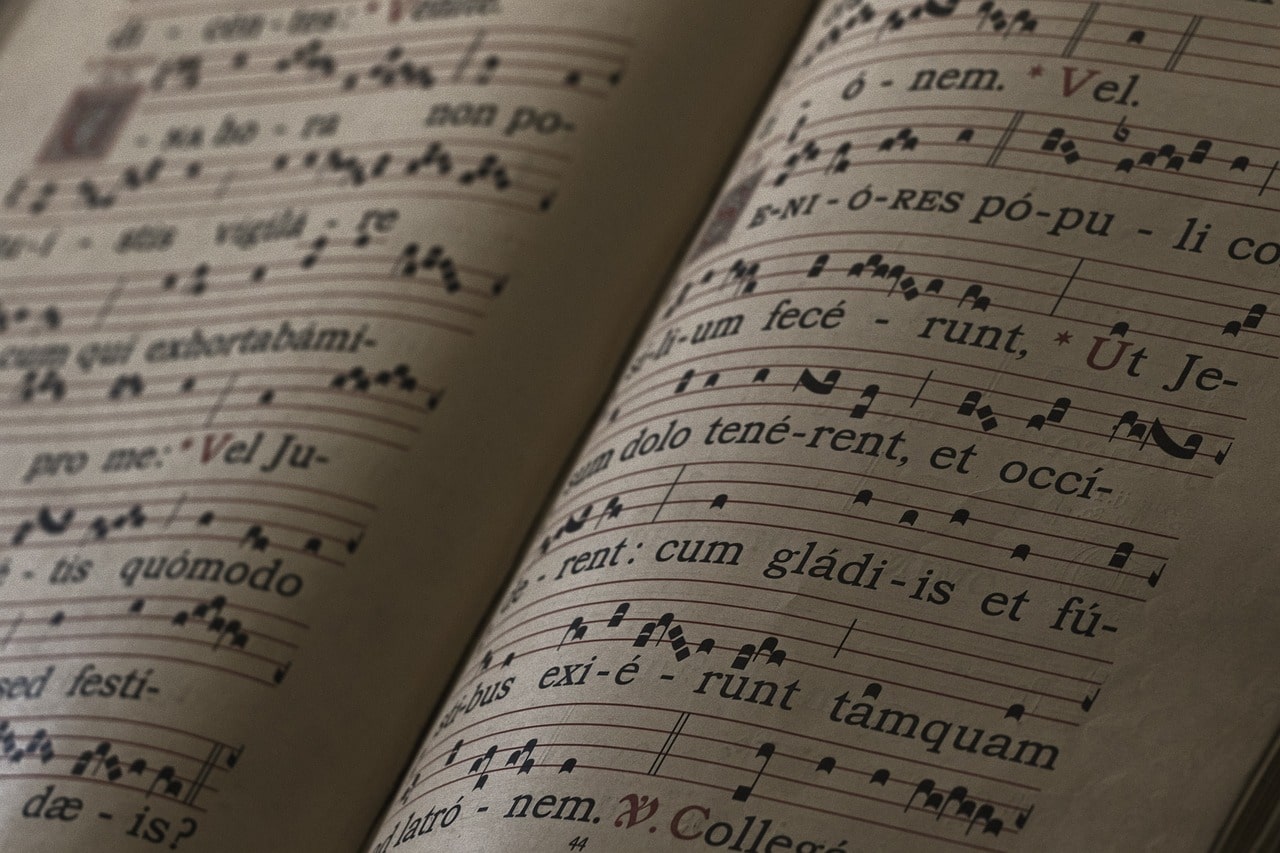 di - cén-tes: * Vení-te.
U - NA ho - ra non po-
tu-í - stis vigilá - re
cum qui exhortabámi-
pro me: * Vel Ju-
- tis quómodo
sed festí-
dæ - is?
ó - nem. * Vel.
E-NI - Ó-RES pópu - li co
si-li-um fecé - runt, * Ut Je-
sum dolo tené-rent, et occí-
de - rent: cum gládi-is et fú-
sti-bus exi-é - runt tamquam
ad latró - nem. ℣. Collegé
44